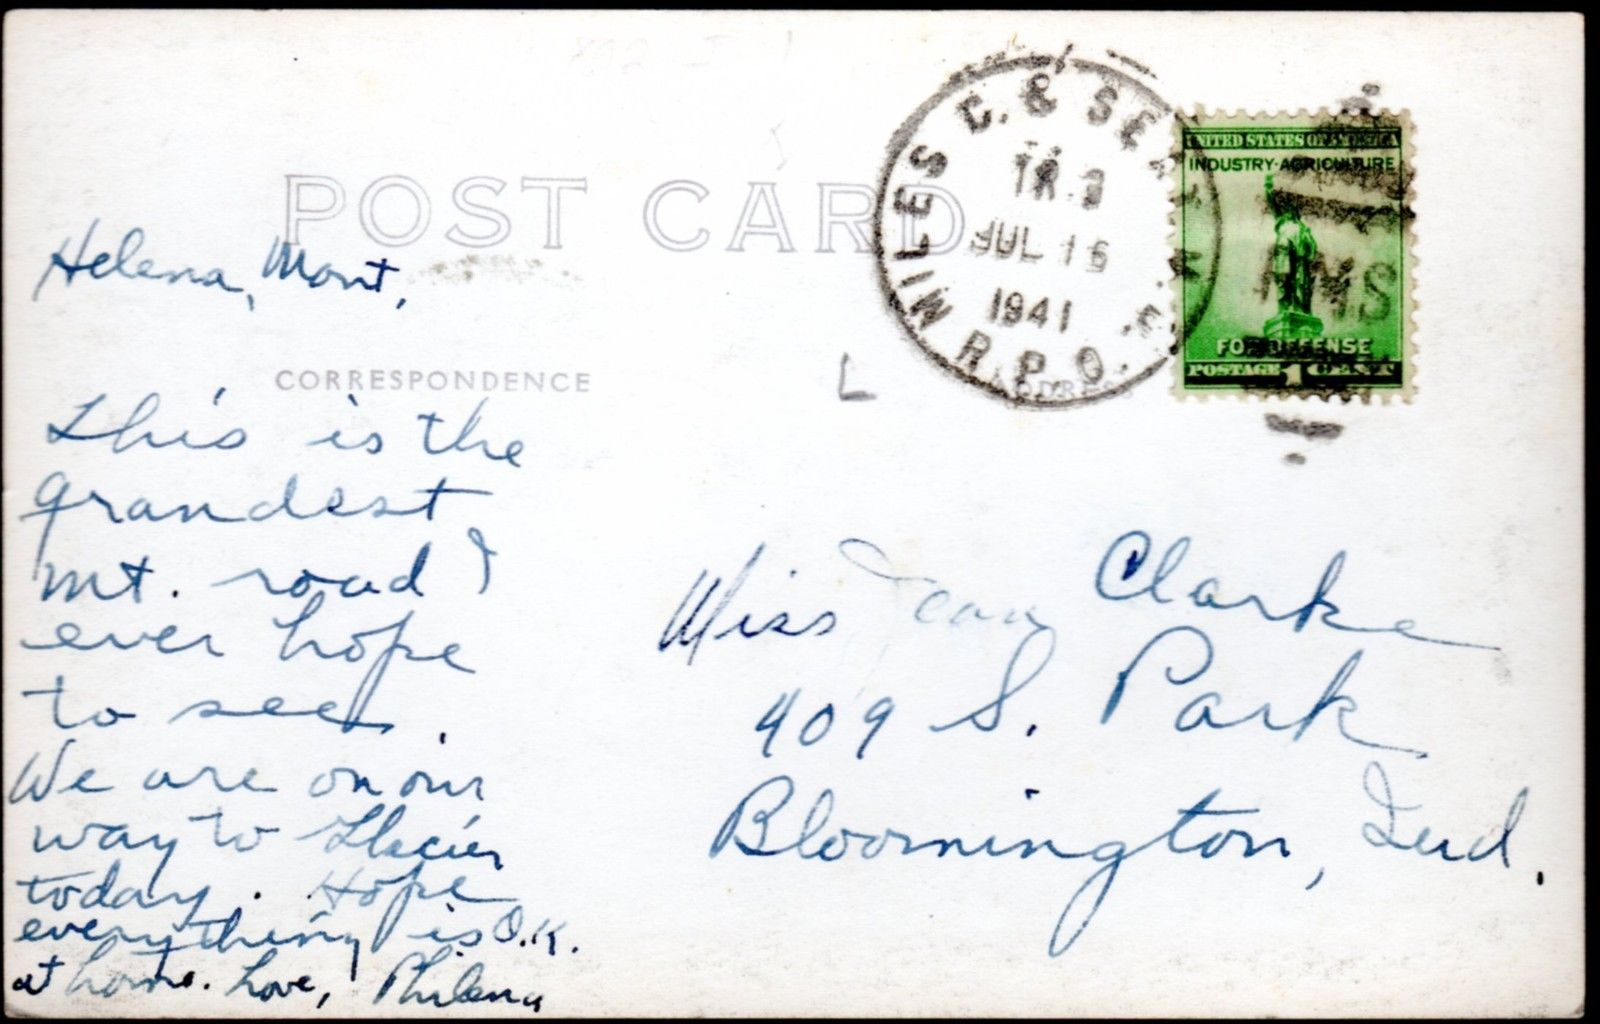 POST CARD
CORRESPONDENCE
Helena, Mont.
This is the
grandest
mt. road I
ever hope
to see.
We are on our
way to Glacier
today. Hope
everything is O.K.
at home. Love, Philena
MILES C. & SEATTLE
TR. 
JUL 16
1941
R.P.O.
UNITED STATES OF AMERICA
INDUSTRY·AGRICULTURE
RMS
FOR DEFENSE
POSTAGE 1 CENT
ADDRESS
L
Miss Jean Clarke
409 S. Park
Bloomington, Ind.